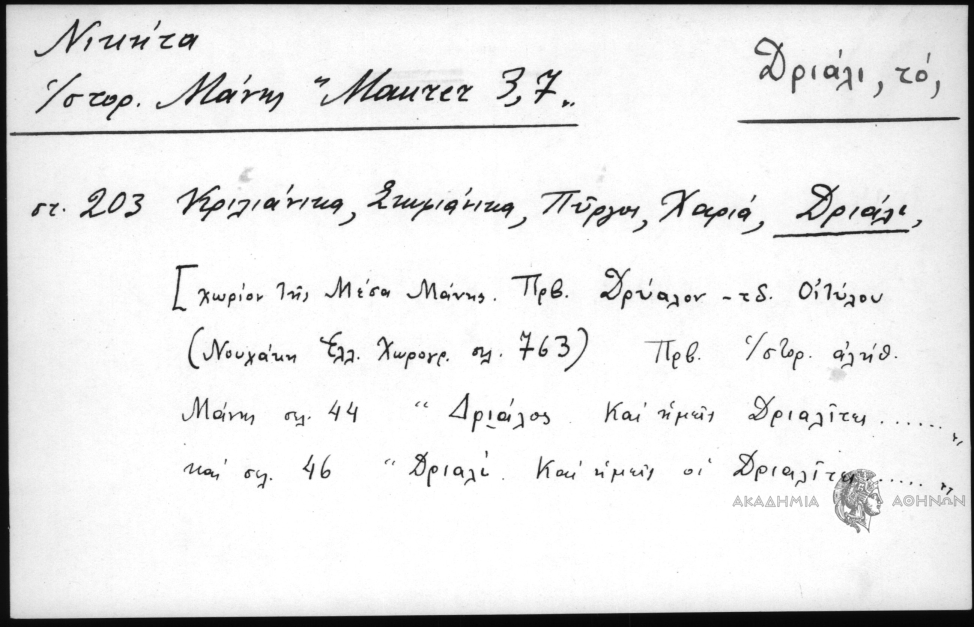 Νικήτα
Ἱστορ. Μάνης "Maurer 3,7„
Δριάλι, τό,
στ. 203 Κριλιάνικα, Σκυφιάνικα, Πῦργοι, Χαριά, Δριάλι,
[χωρίον τῆς Μέσα Μάνης. Πρβ. Δρύαλον - τδ. Οἰτύλου
(Νουχάκη Ἑλλ. Χωρογρ. σελ. 763) Πρβ. Ἱστορ. ἀληθ.
Μάνης σελ. 44 " Δριάλος. Καὶ ἡμεῖς Δριαλῖτες ...... „
καὶ σελ. 46 " Δριαλί. Καὶ ἡμεῖς οἱ Δριαλῖτες ...... „
ΑΚΑΔΗΜΙΑ ΑΘΗΝΩΝ